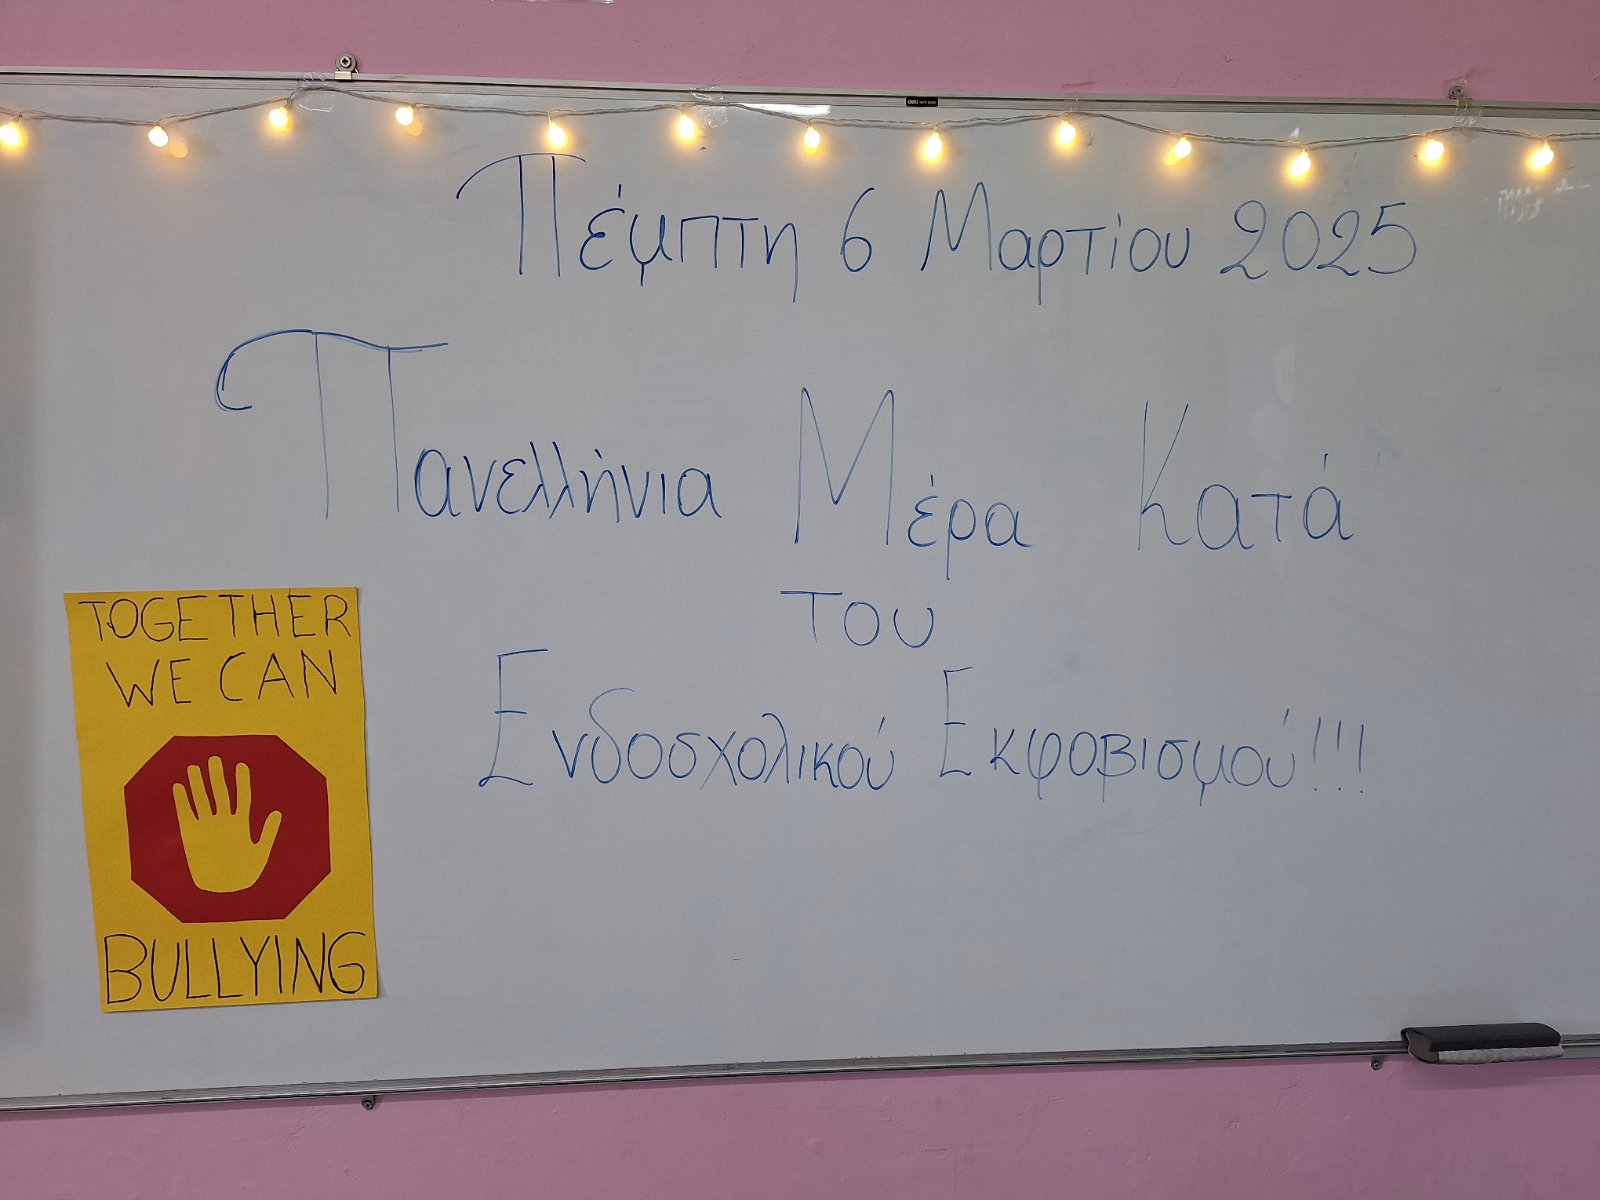 Πέμπτη 6 Μαρτίου 2025
Πανελλήνια Μέρα Κατά
του
Ενδοσχολικού Εκφοβισμού!!!
TOGETHER
WE CAN
BULLYING